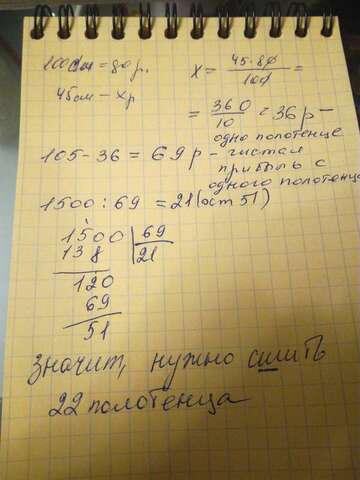 100см = 80 р.
45см - xр
x = 45·80 / 100 =
= 360 / 10 = 36 р -
одно полотенце
105 - 36 = 69 р - чистая
прибыль с
одного полотенца
1500 : 69 = 21 (ост 51)
1500 69
138 21
120
69
51
Значит, нужно сшить
22 полотенца